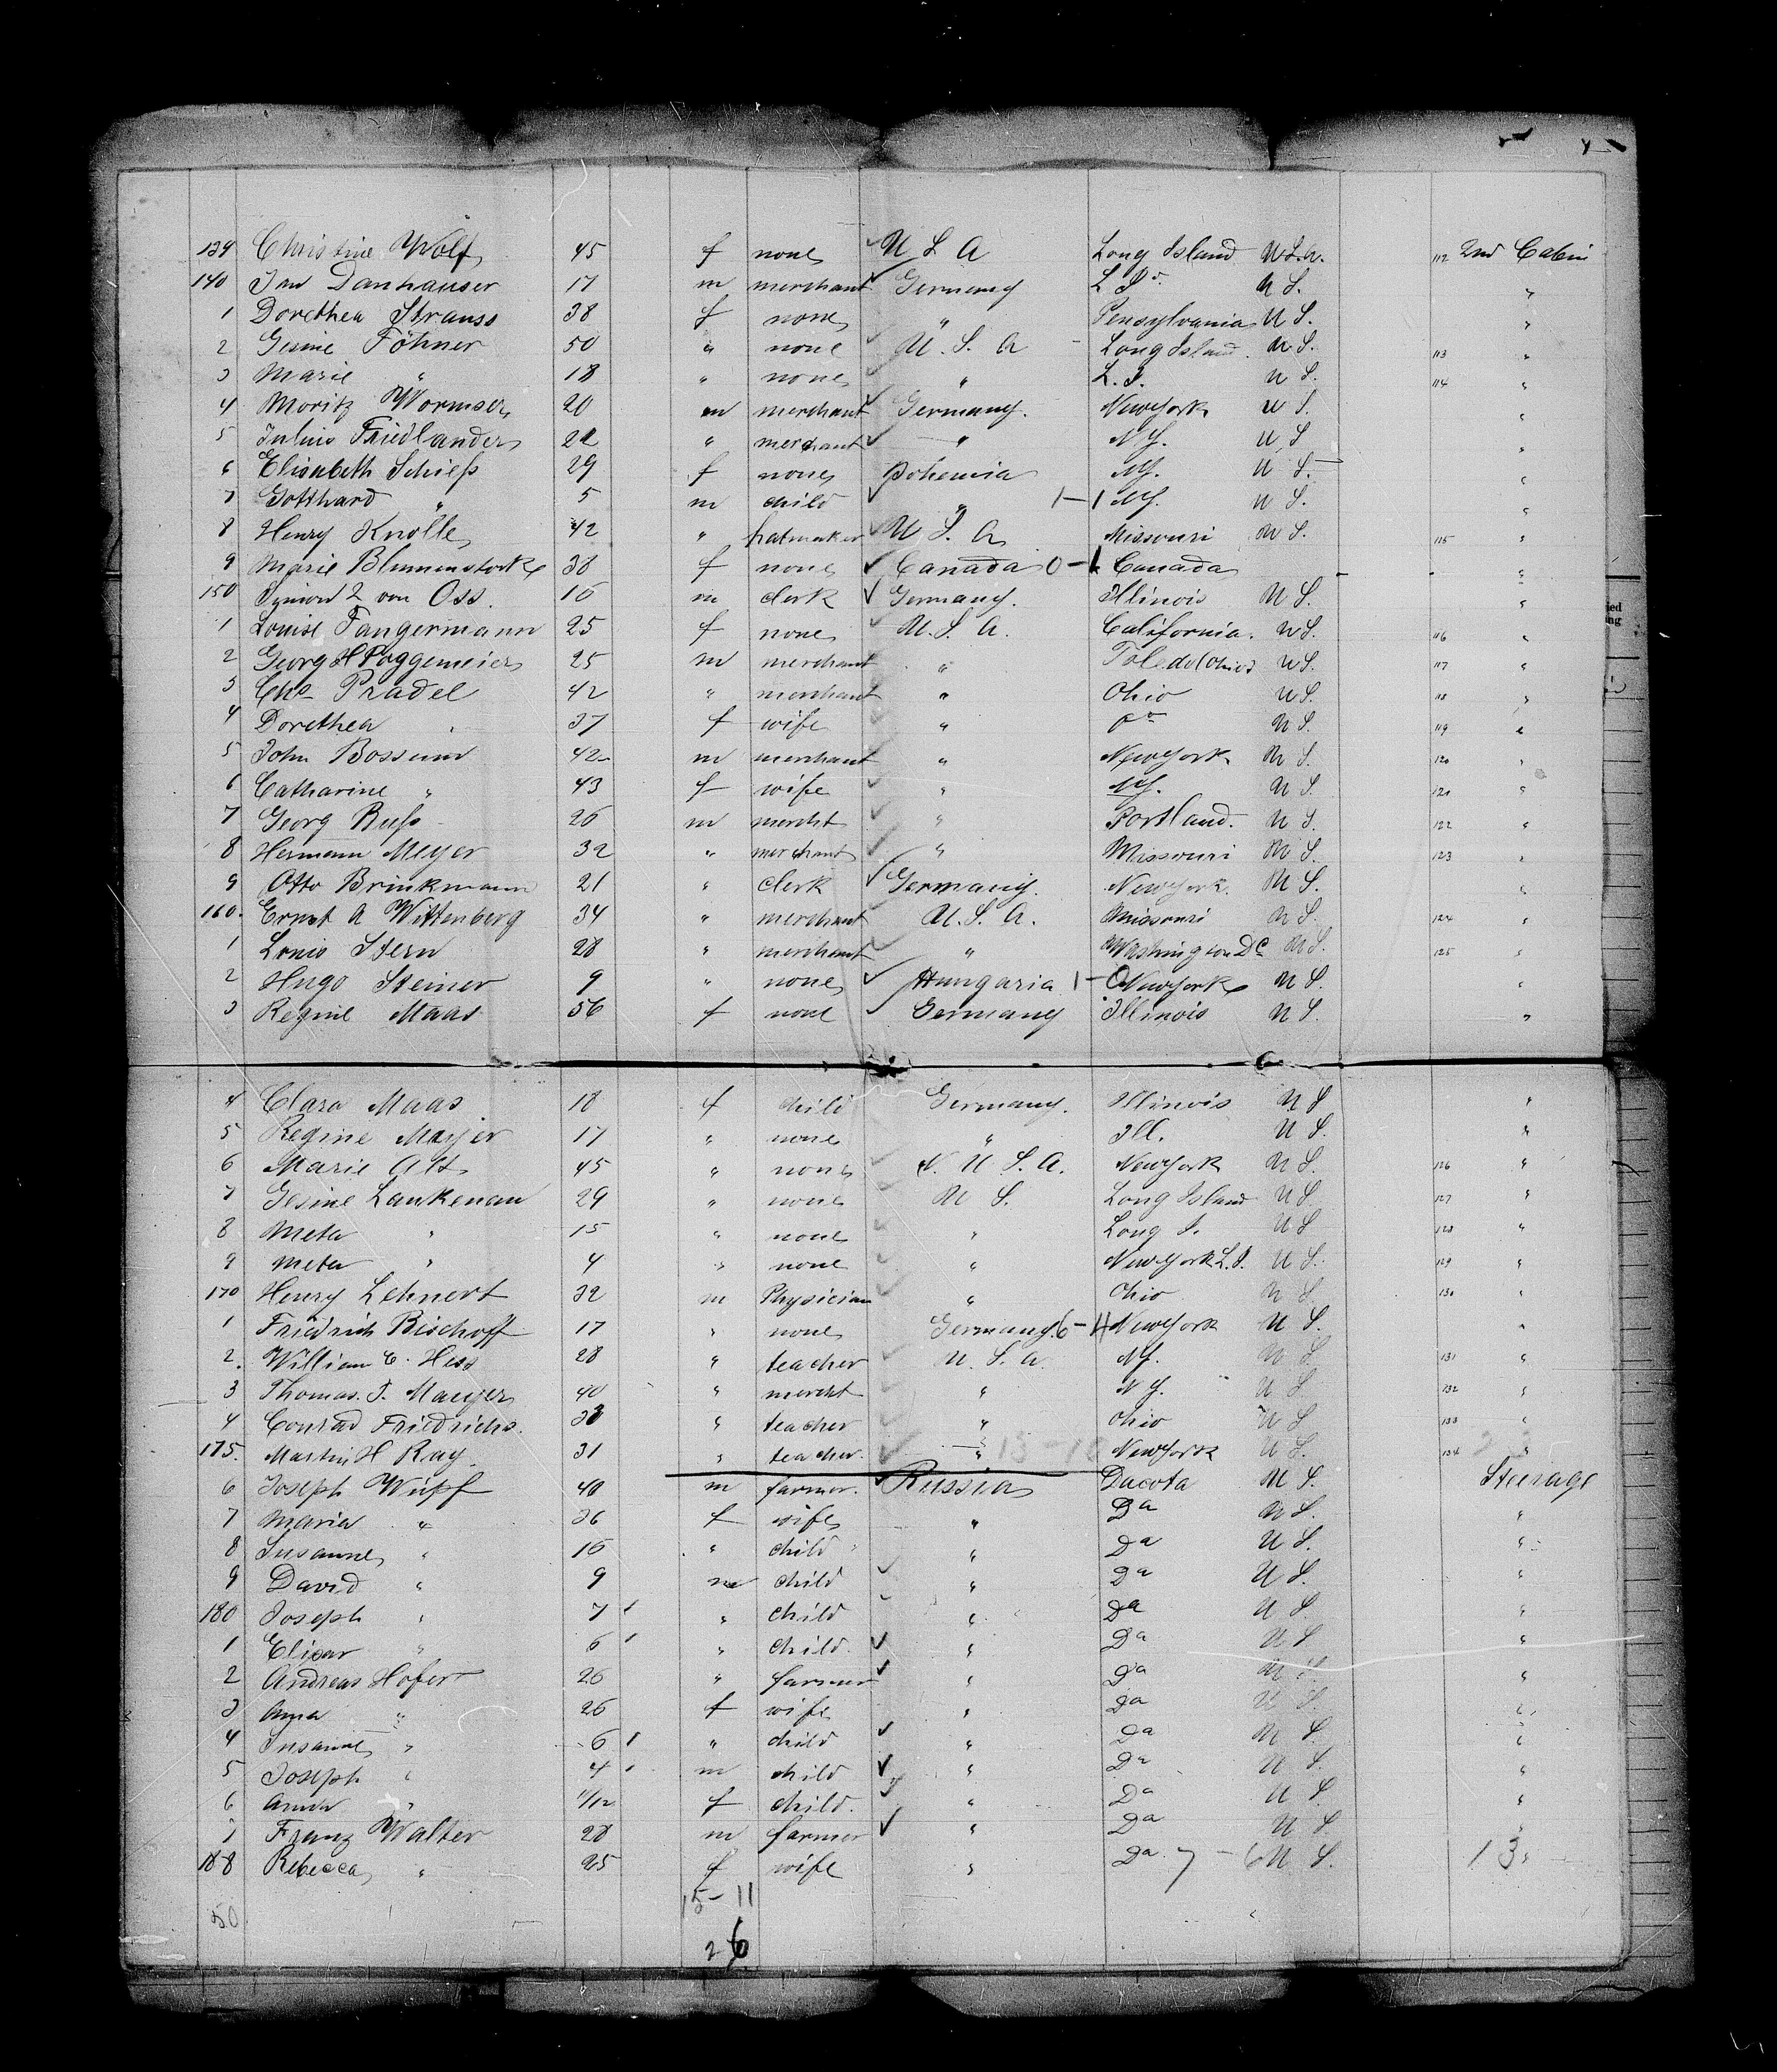 139 Christine Wolf 45 f none U S A Long Island U.S.A. 112 2nd Cabin
140 Danhauser 17 m merchant Germany L I U S. "
1 Dorethea Strauss 38 f none " Pensylvania U S. "
2 Gesine Föhner 50 " none U. S. A Long Island. U S. 113 "
3 Marie " 18 " none " L. I. U S. 114 "
4 Moritz Wormser 20 m merchant Germany. New York U S. "
5 Julius Friedlander 22 " merchant " N Y. U S "
6 Elisabeth Schiess 29 f none Bohemia N Y. U S. "
7 Gotthard " 5 m child " 1-1 N Y. U S. "
8 Henry Knolle 42 " hatmaker U S. A Missouri U S. 115 "
9 Marie Blumenstock 38 f none Canada 0-1 Canada "
150 2 van Oss. 16 m clerk Germany. Illinois U S. "
1 Louise Fangermann 25 f none U. S. A. California. U S. 116 "
2 Georg H Poggemeier 25 m merchant " Toledo (Ohio) U S. 117 "
3 Chs Pradel 42 " merchant " Ohio U S. 118 "
4 Dorethea " 37 f wife " Do U S. 119 "
5 John Bossum 42 m merchant " New York U S. 120 "
6 Catharine " 43 f wife " N Y. U S 121 "
7 Georg Buss 26 m mercht " Portland. U S. 122 "
8 Hermann Meyer 32 " merchant " Missouri U S. 123 "
9 Otto Brinkmann 21 " clerk Germany. New York. U S. "
160. Ernst A Wittenberg 34 " merchant U. S. A. Missouri U S. 124 "
1 Louis Stern 28 " merchant " Washington DC U S. 125 "
2 Hugo Steiner 9 " none Hungaria 1-0 New York U S. "
3 Regine Maas 56 f none Germany Illinois U S. "
4 Clara Maas 18 f child Germany. Illinois U S "
5 Regine Mayer 17 " none " Ill. U S. "
6 Marie Alt 45 " none U. S. A. New York U S. 126 "
7 Gesine Lankenau 29 " none U S. Long Island U S 127 "
8 Meta " 15 " none " Long I. U S 128 "
9 Meta " 4 " none " New York L. I. U S. 129 "
170 Henry Lehnert 32 m Physician " Ohio U S 130 "
1 Friedrich Bischoff 17 " none Germany 6-4 New York U S. "
2. William C. Hess 28 " teacher U. S. A. N Y. U S 131 "
3 Thomas. J. Mauyer 40 " mercht " N Y. U S 132 "
4 Conrad Friedrichs. 38 " teacher " Ohio U S 133 "
175. Martin H Ray. 31 " teacher. " New York U S. 134 "
6 Joseph Wipf 40 m farmer. Russia Dacota U S. Steerage
7 Maria " 36 f wife " Da U S. "
8 Susanne " 16 " child " Da U S. "
9 David " 9 m child " Da U S. "
180 Joseph " 7 " child " Da U S. "
1 Elisar " 6 " child. " Da U S "
2 Andreas Hofer 26 " farmer " Da U S. "
3 Anna " 26 f wife " Da U S. "
4 Susanne " 6 " child " Da U S. "
5 Joseph " 4 m child " Da U S. "
6 Anna " 11/12 f child. " Da U S. "
7 Franz Walter 28 m farmer " Da U S "
188 Rebecca " 25 f wife " Da 7-6 U S. 13 "
15-11
50
26